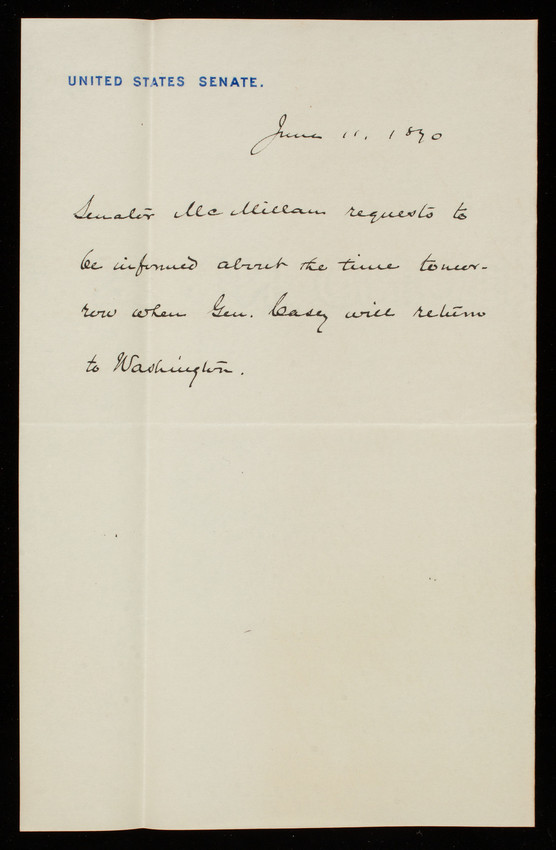 UNITED STATES SENATE.
June 11. 1890
Senator McMillan requests to
be informed about the time tomor-
row when Gen. Casey will return
to Washington.